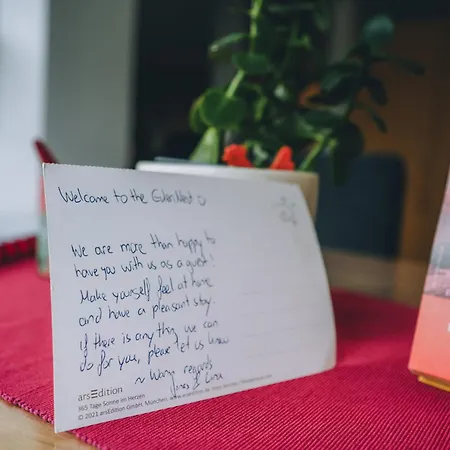 Welcome to the
We are more than happy to
have you with us as a guest!
Make yourself feel at home
and have a pleasant stay.
If there is any thing we can
do for you, please let us know
~ Warm regards
arsEdition
365 Tage Sonne im Herzen
© 2021 arsEdition GmbH, München, www.arsedition.de